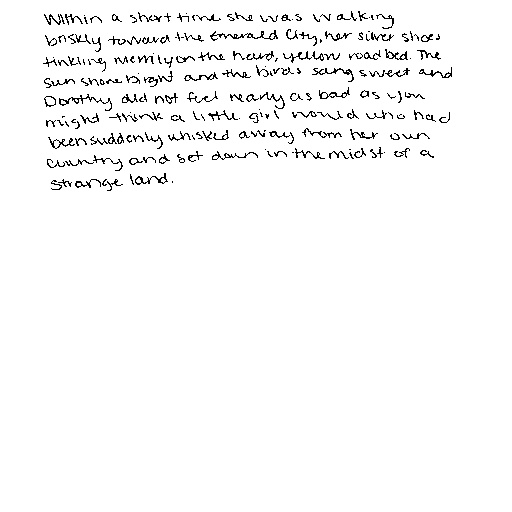 Within a short time she was walking
briskly toward the Emerald City, her silver shoes
tinkling merrily on the hard, yellow road bed. The
sun shone bright and the birds sang sweet and
Dorothy did not feel nearly as bad as you
might think a little girl would who had
been suddenly whisked away from her own
country and set down in the midst of a
strange land.